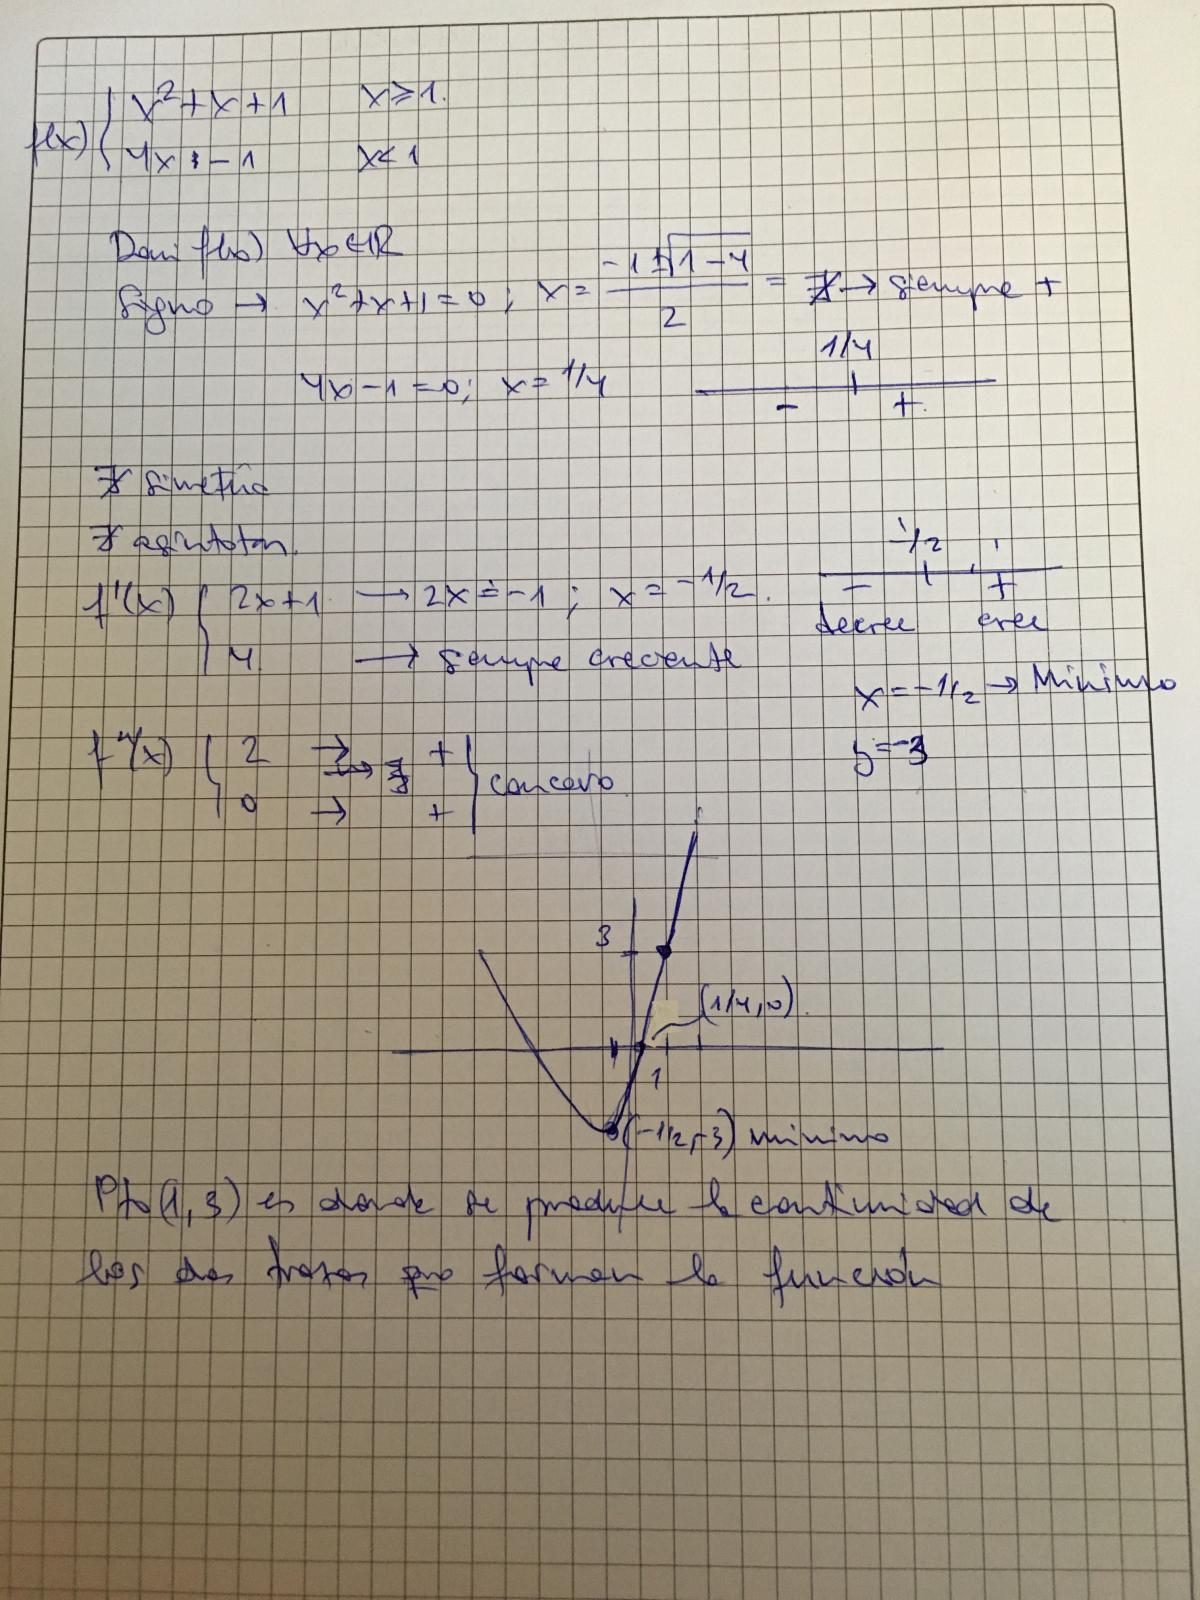 f(x) { x²+x+1 x≥1.
4x -1 x<1
Dom f(x) ∀x∈ℝ
Signo → x²+x+1=0; x= (-1±√(1-4))/2 = ∄ → siempre +
4x-1=0; x=1/4
1/4
- +
∄ simetría
∄ asíntotas.
-1/2
- +
decrece crece
f'(x) { 2x+1 → 2x=-1; x=-1/2.
4 → siempre creciente
x=-1/2 → Mínimo
y=-3
f''(x) { 2 → +
0 → + } concavo
3
(1/4,0).
1
(-1/2,-3) mínimo
Pto (1,3) es donde se produce la continuidad de
los dos trozos que forman la función